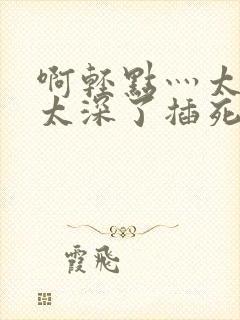 啊轻點灬太
太深了插死
霞飛